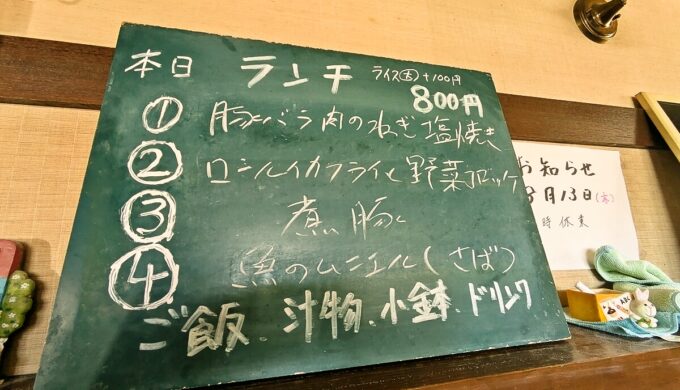 本日 ランチ ライス大+100円
800円
① 豚バラ肉のねぎ塩焼き
② ロシルイカフライと野菜コロッケ
③ 煮豚
④ 魚のムニエル(さば)
ご飯、汁物、小鉢、ドリンク
お知らせ
8月13日(水)
時休業